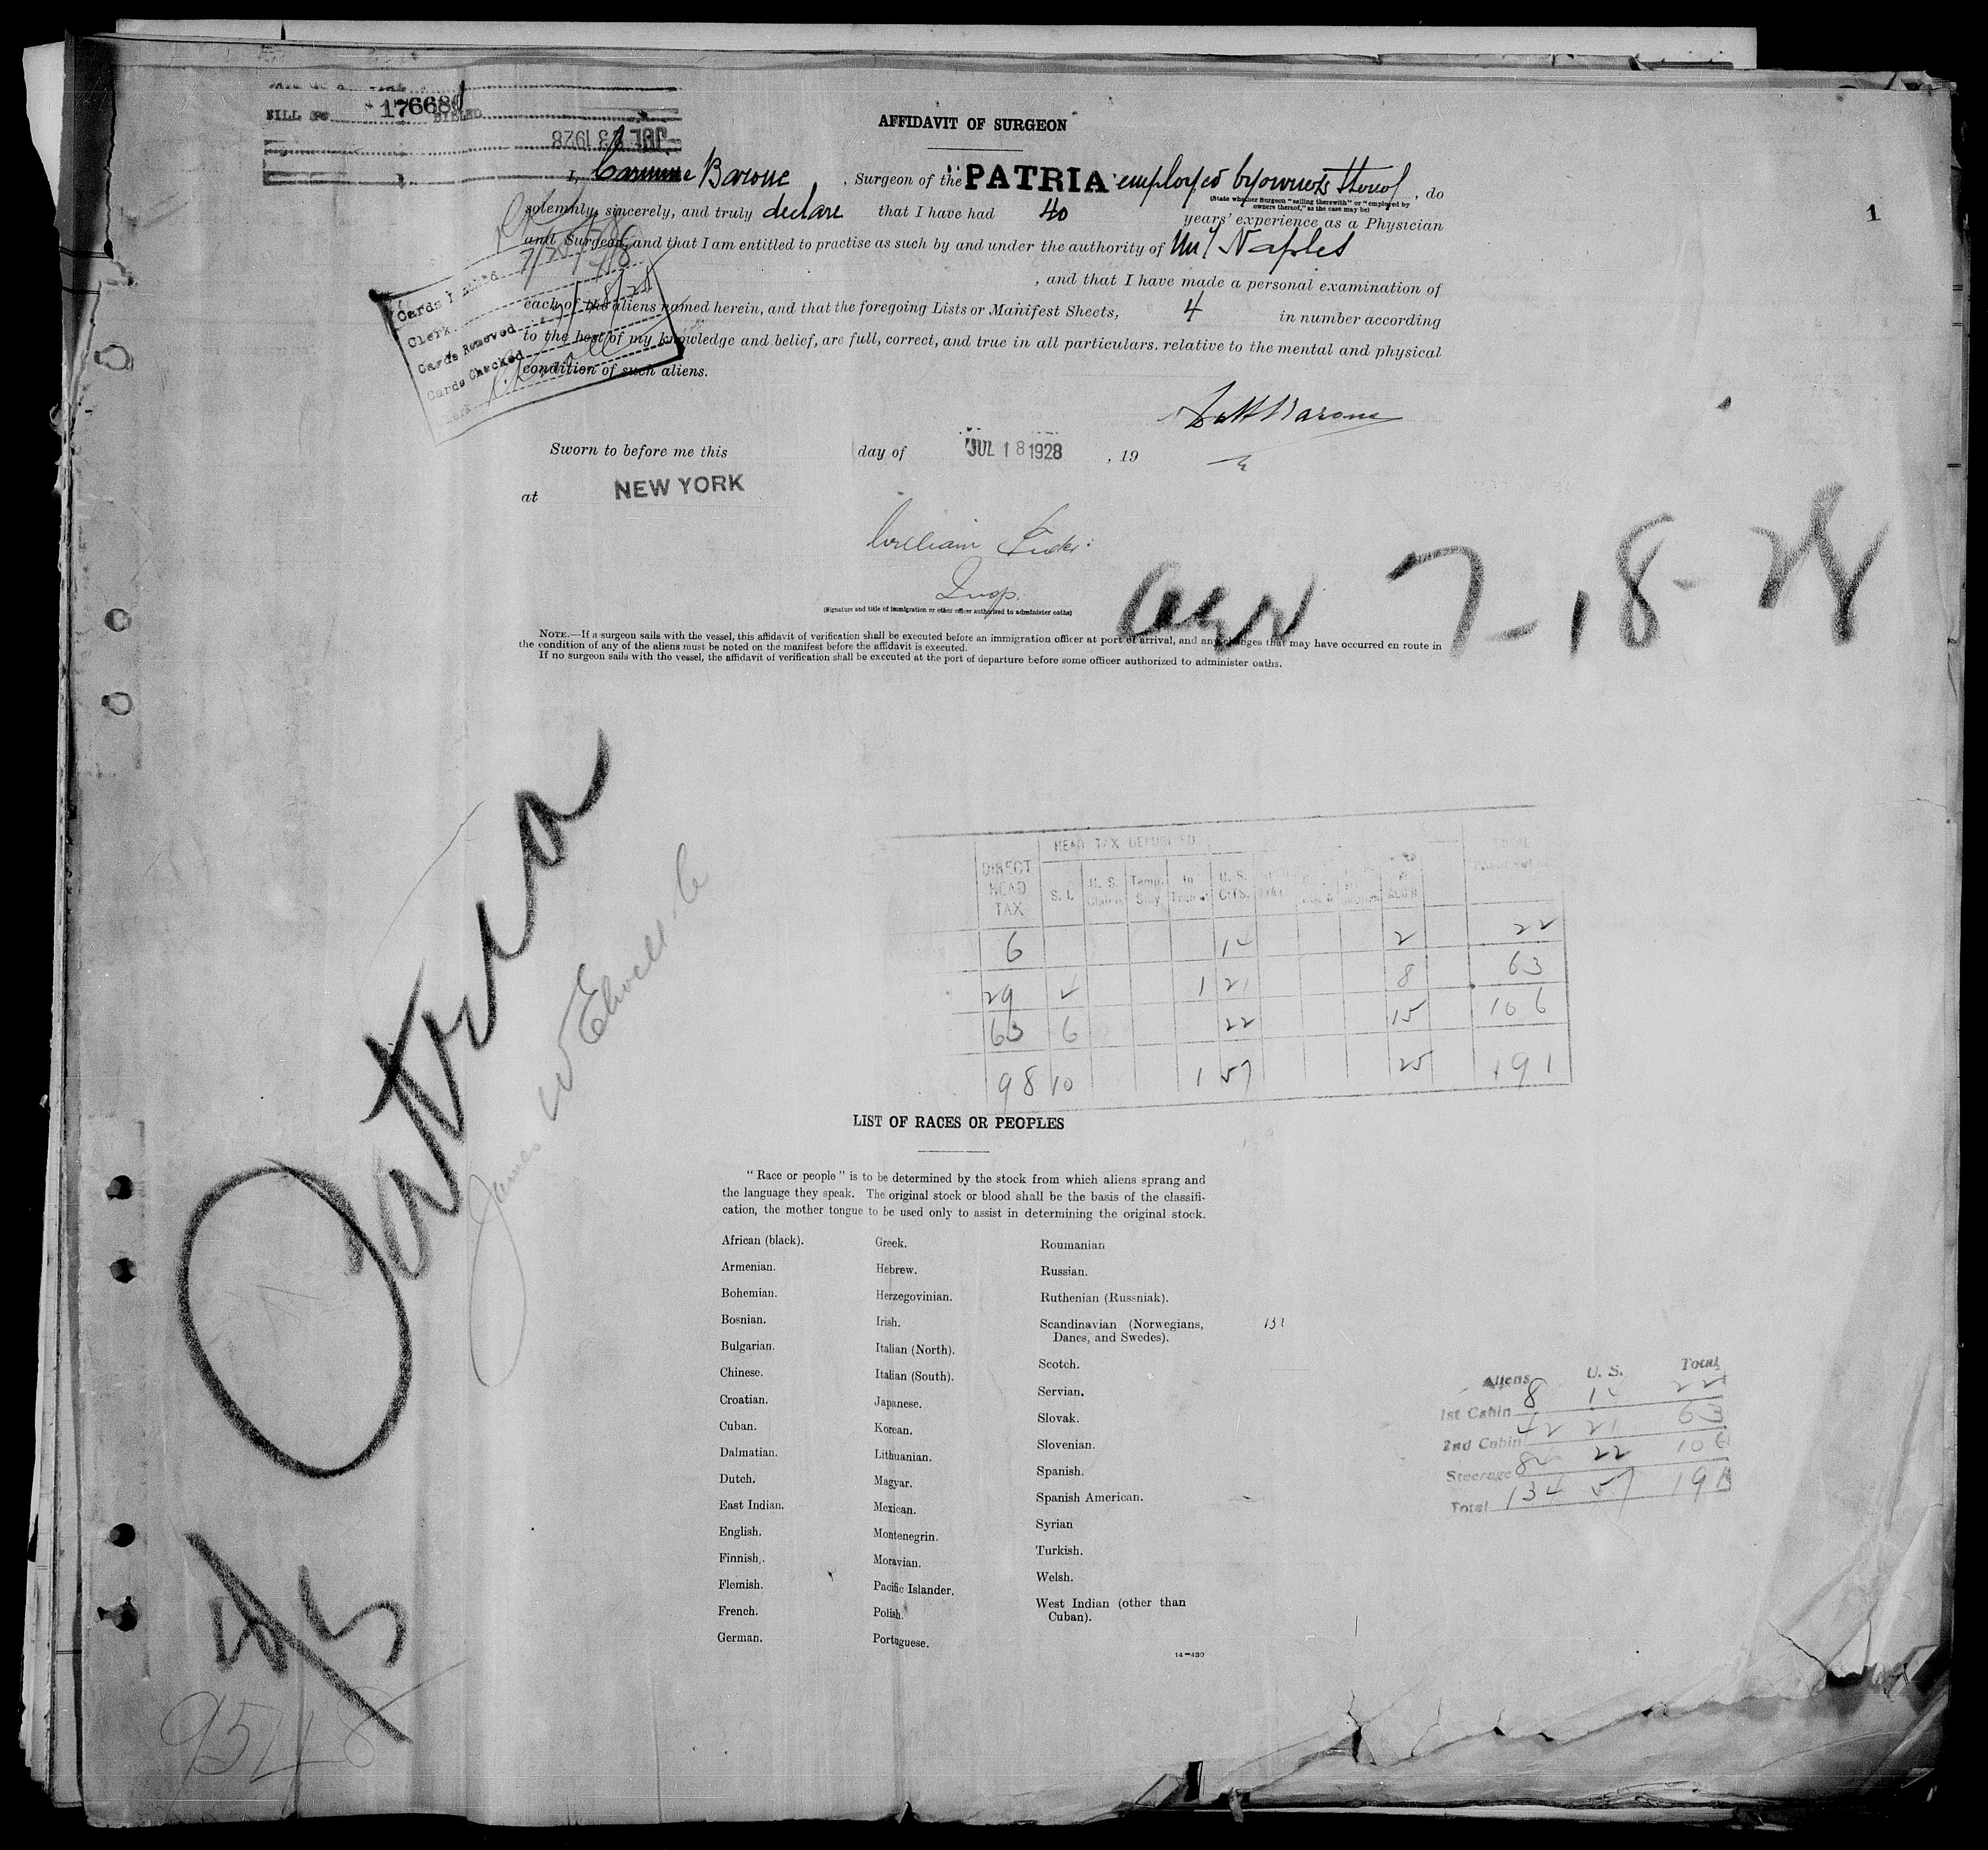 BILL NO. 176681 BILLED
JUL 23 1928
AFFIDAVIT OF SURGEON
I, Carmine Barone, Surgeon of the "PATRIA" employed by owners thereof, do
(State whether Surgeon "sailing therewith" or "employed by
owners thereof," as the case may be)
solemnly, sincerely, and truly declare that I have had 40 years' experience as a Physician
and Surgeon, and that I am entitled to practise as such by and under the authority of Naples
, and that I have made a personal examination of
each of the aliens named herein, and that the foregoing Lists or Manifest Sheets, 4 in number according
to the best of my knowledge and belief, are full, correct, and true in all particulars. relative to the mental and physical
condition of such aliens.
1
Clerk
Cards Removed
Cards Checked
Clerk
Barone
Sworn to before me this day of JUL 18 1928, 19
at NEW YORK
William
Insp.
(Signature and title of immigration or other officer authorized to administer oaths)
7-18-28
NOTE.—If a surgeon sails with the vessel, this affidavit of verification shall be executed before an immigration officer at port of arrival, and any changes that may have occurred en route in
the condition of any of the aliens must be noted on the manifest before the affidavit is executed.
If no surgeon sails with the vessel, the affidavit of verification shall be executed at the port of departure before some officer authorized to administer oaths.
Patria
James W Elwell & Co
HEAD TAX DEPOSITED
DIRECT HEAD TAX S. I. U. S. Claims Temp. Stay In Trans. U. S. CITS.
6 14 2 22
29 4 1 21 8 63
63 6 22 15 106
98 10 1 57 25 191
LIST OF RACES OR PEOPLES
"Race or people" is to be determined by the stock from which aliens sprang and
the language they speak. The original stock or blood shall be the basis of the classifi-
cation, the mother tongue to be used only to assist in determining the original stock.
African (black).
Armenian.
Bohemian.
Bosnian.
Bulgarian.
Chinese.
Croatian.
Cuban.
Dalmatian.
Dutch.
East Indian.
English.
Finnish.
Flemish.
French.
German.
Greek.
Hebrew.
Herzegovinian.
Irish.
Italian (North).
Italian (South).
Japanese.
Korean.
Lithuanian.
Magyar.
Mexican.
Montenegrin.
Moravian.
Pacific Islander.
Polish.
Portuguese.
Roumanian
Russian.
Ruthenian (Russniak).
Scandinavian (Norwegians,
Danes, and Swedes).
Scotch.
Servian.
Slovak.
Slovenian.
Spanish.
Spanish American.
Syrian
Turkish.
Welsh.
West Indian (other than
Cuban).
14—430
Aliens U. S. Total
1st Cabin 8 14 22
2nd Cabin 42 21 63
Steerage 84 22 106
Total 134 57 191
9548